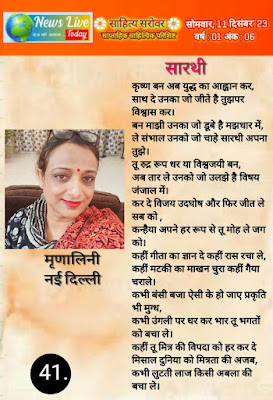 News Live
देश की आवाज
Today
साहित्य सरोवर
साप्ताहिक साहित्यिक परिशिष्ट
सोमवार, 11 दिसंबर 23
वर्ष : 01 अंक : 06
सारथी
कृष्ण बन अब युद्ध का आह्वान कर,
साध दे उनका जो जीते है तुझपर
विश्वास कर।
बन माझी उनका जो डूबे है मझधार में,
ले संभाल उनको जो चाहे सारथी अपना
तुझे।
तू रुद्र रूप धर या विश्वजयी बन,
अब तार ले उनको जो उलझे है विषय
जंजाल में।
कर दे विजय उदघोष और फिर जीत ले
सब को ,
कन्हैया अपने हर रूप से तू मोह ले जग
को।
कहीं गीता का ज्ञान दे कहीं रास रचा ले,
कहीं मटकी का माखन चुरा कहीं गैया
चराले।
कभी बंसी बजा ऐसी के हो जाए प्रकृति
भी मुग्ध,
कभी उंगली पर धर कर भार तू भगतों
को बचा ले।
कहीं तू मित्र की विपदा को हर कर दे
मिसाल दुनिया को मित्रता की अजब,
कभी लुटती लाज किसी अबला की
बचा ले।
मृणालिनी
नई दिल्ली
41.